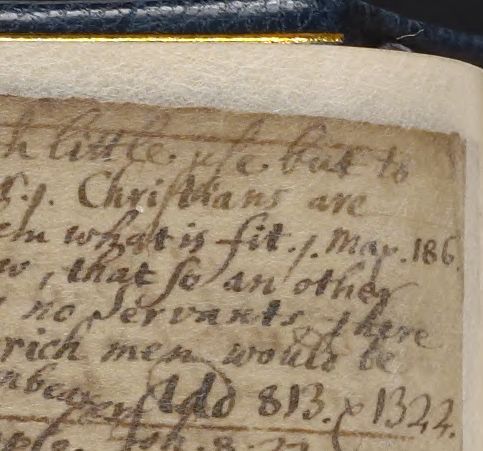 h little use but to
Christians are
em what is fit. j. Mar. 186.
w, that so an other
no Servants, there
rich men would be
Add 813. & 1322.